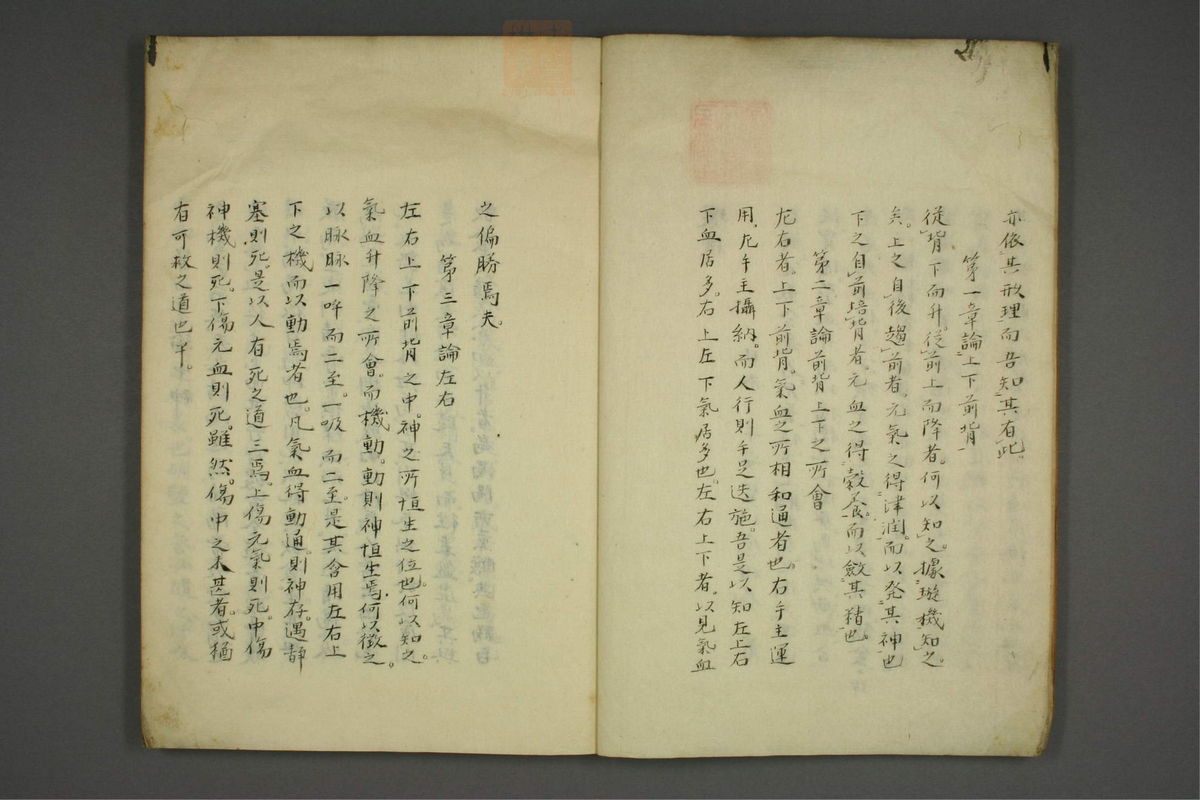 亦依其形理而吾知其有此。
第一章論上下前背
從背下而升。從前上而降者。何以知之。據璇機知之
矣。上之自後趨前者。元氣之得津潤。而以発其神也
下之自前培背者。元血之得穀養。而以斂其精也。
第二章論前背上下之所會
左右者。上下前背。氣血之所相和通者也。右手主運
用。左手主攝納。而人行則手足迭施。吾是以知左上右
下血居多。右上左下氣居多也。左右上下者。以見氣血
之偏勝焉夫。
第三章論左右
左右上下前背之中。神之所恒生之位也。何以知之。
氣血升降之所會。而機動。動則神恒生焉。何以徵之。
以脉脉一呼而二至。一吸而二至。是其含用左右上
下之機而以動焉者也。凡氣血得動通。則神存。遇靜
塞則死。是以人有死之道三焉。上傷元氣則死。中傷
神機則死。下傷元血則死。雖然。傷中之未甚者。或猶
有可救之道也乎。